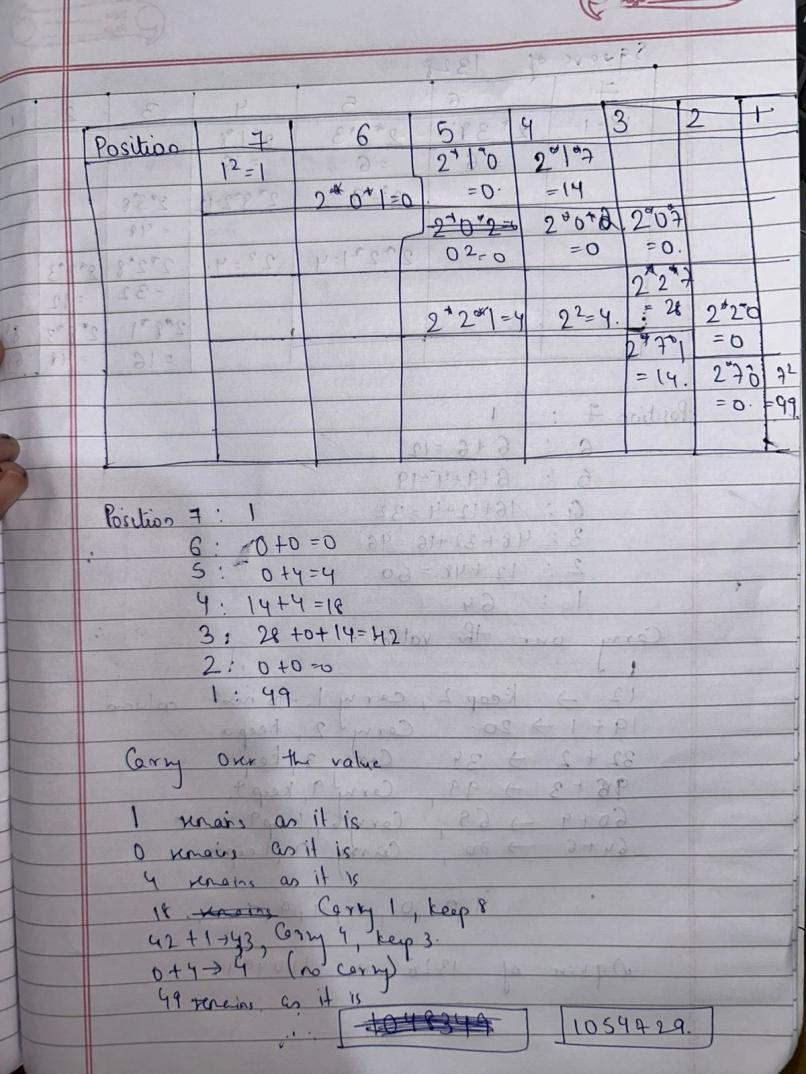 Position 7 6 5 4 3 2 1
1² = 1 2*1*0 2*1*7
2*0*1=0 =0. =14
2*0*2=0 2*0*2 2*0*7
0²=0 =0 =0.
2*2*7
2*2*1=4 2²=4. = 28 2*2*0
2*7*1 =0
=14. 2*7*0 7²
=0. =49
Position 7 : 1
6 : 0+0=0
5 : 0+4=4
4 : 14+4=18
3 : 28+0+14=42
2 : 0+0=0
1 : 49
Carry over the value
1 remains as it is
0 remains as it is
4 remains as it is
18 remains Carry 1, keep 8
42+1→43, Carry 4, keep 3.
0+4→4 (no carry)
49 remains as it is
∴ 1048349 1054729.